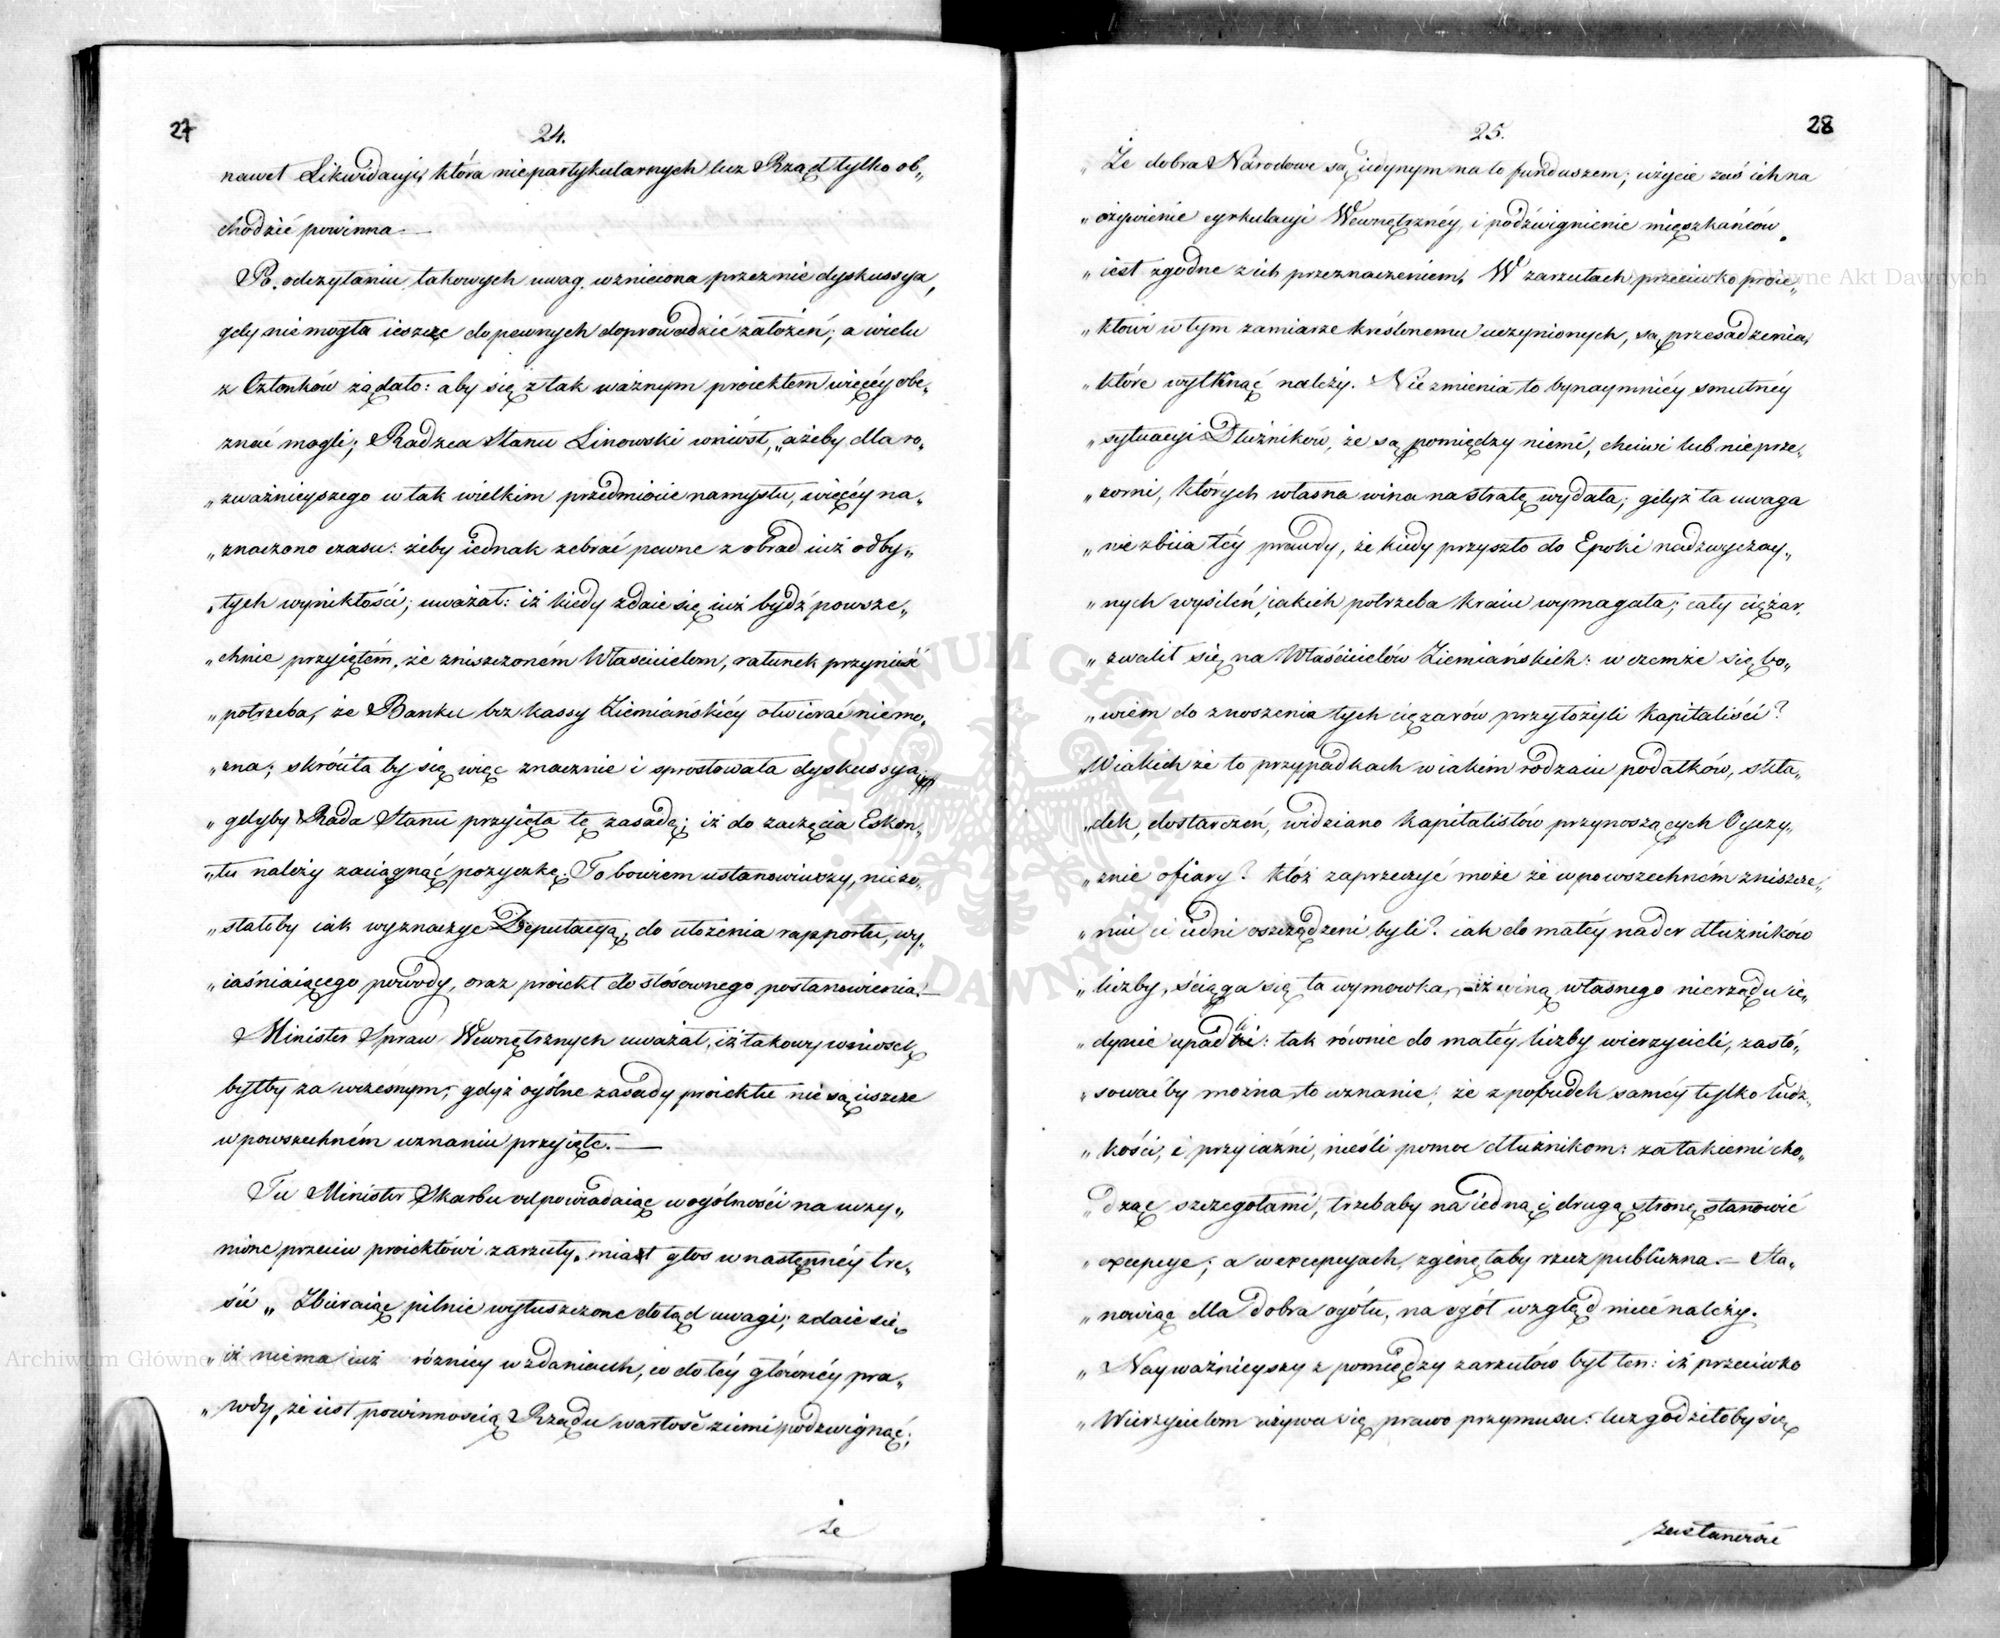 27
24.
nawet Likwidacyi, która niepartykularnych lecz Rząd tylko ob„
chodzić powinna —
Po odczytaniu takowych uwag, wzniecona przeznie dyskussya,
gdy niemogła ieszcze do pewnych doprowadzić założeń; a wielu
z Członków żądało: aby się z tak ważnym proiektem więcéy obe„
znać mogli; Radzca Stanu Linowski wniósł, „ażeby dla ro„
„zważnieyszego w tak wielkim przedmiocie namysłu, więcéy na„
„znaczono czasu: żeby iednak zebrać pewne z obrad iuż odby„
„tych wynikłości; uważał: iż kiedy zdaie się iuż bydź powsze„
„chnie przyiętém, że zniszczoném Właścicielom, ratunek przynieść
„potrzeba, że Banku bez kassy Ziemiańskiéy otwierać niemo„
„żna; skróciła by się więc znacznie i sprostowała dyskussya,
„gdyby Rada Stanu przyięła tę zasadę; iż do zaczęcia Eskon„
„tu należy zaciągnąć pożyczkę. To bowiem ustanowiwszy, niezo„
„stałoby iak wyznaczyć Deputacyą, do ułożenia rapportu, wy„
„iaśniaiącego powody, oraz proiekt do stósownego postanowienia. —
Minister Spraw Wewnętrznych uważał, iż takowy wniosek
byłby za wczesnym, gdyż ogólne zasady proiektu nie są ieszcze
w powszechném uznaniu przyięte. —
Tu Minister Skarbu odpowiadaiąc w ogólności na uczy„
nione przeciw proiektowi zarzuty, miał głos w następnéy tre„
ści „Zbieraiąc pilnie wyłuszczone dotąd uwagi; zdaie się,
„iż niema iuż różnicy w zdaniach, co do téy głównéy pra„
„wdy, że iest powinnością Rządu wartość ziemi podzwignąć;
że
28
25.
„Że dobra Narodowe są iedynym na to funduszem; użycie zaś ich na
„ożywienie cyrkulacyi Wewnętrznéy, i podźwignienie mięszkańców
„iest zgodne z ich przeznaczeniem. W zarzutach przeciwko proie„
„ktowi w tym zamiarze kreślonemu uczynionych, są przesadzenia,
„które wytknąć należy. Nie zmienia to bynaymniéy smutnéy
„sytuacyi Dłużników, że są pomiędzy niemi, chciwi lub nieprze„
„zorni, których własna wina na stratę wydała; gdyż ta uwaga
„nie zbiia téy prawdy, że kiedy przyszło do Epoki nadzwyczay„
„nych wysileń, iakich potrzeba kraiu wymagała; cały ciężar,
„zwalił się na Właścicielów Ziemiańskich: w czemże się bo„
„wiem do znoszenia tych ciężarów przyłożyli Kapitaliści?
„W iakich że to przypadkach w iakim rodzaiu podatków, skła„
„dek, dostarczeń, widziano Kapitalistów przynoszących Oyczy„
„znie ofiary? któż zaprzeczyć może że w powszechném zniszcze„
„niu ci iedni oszczędzeni byli? iak do małéy nader dłużników
„liczby, ściąga się ta wymowka, iż winą własnego nierządu ie„
„dynie upadli: tak równie do małéy liczby wierzycieli, zastó„
„sować by można, to uznanie; że z pobudek saméy tylko ludz„
„kości, i przyiaźni, nieśli pomoc dłużnikom: za takiemi cho„
„dząc szczegołami, trzebaby na iedną i drugą stronę, stanowić
„excepcye; a w excepcyach, zginęłaby rzecz publiczna. — Sta„
„nowiąc dla dobra ogółu, na ogół wzgląd mieć należy.
„Nayważnieyszy z pomiędzy zarzutów był ten: iż przeciwko
„Wierzycielom używa się, prawo przymusu: lecz godziłoby się
zastanowić